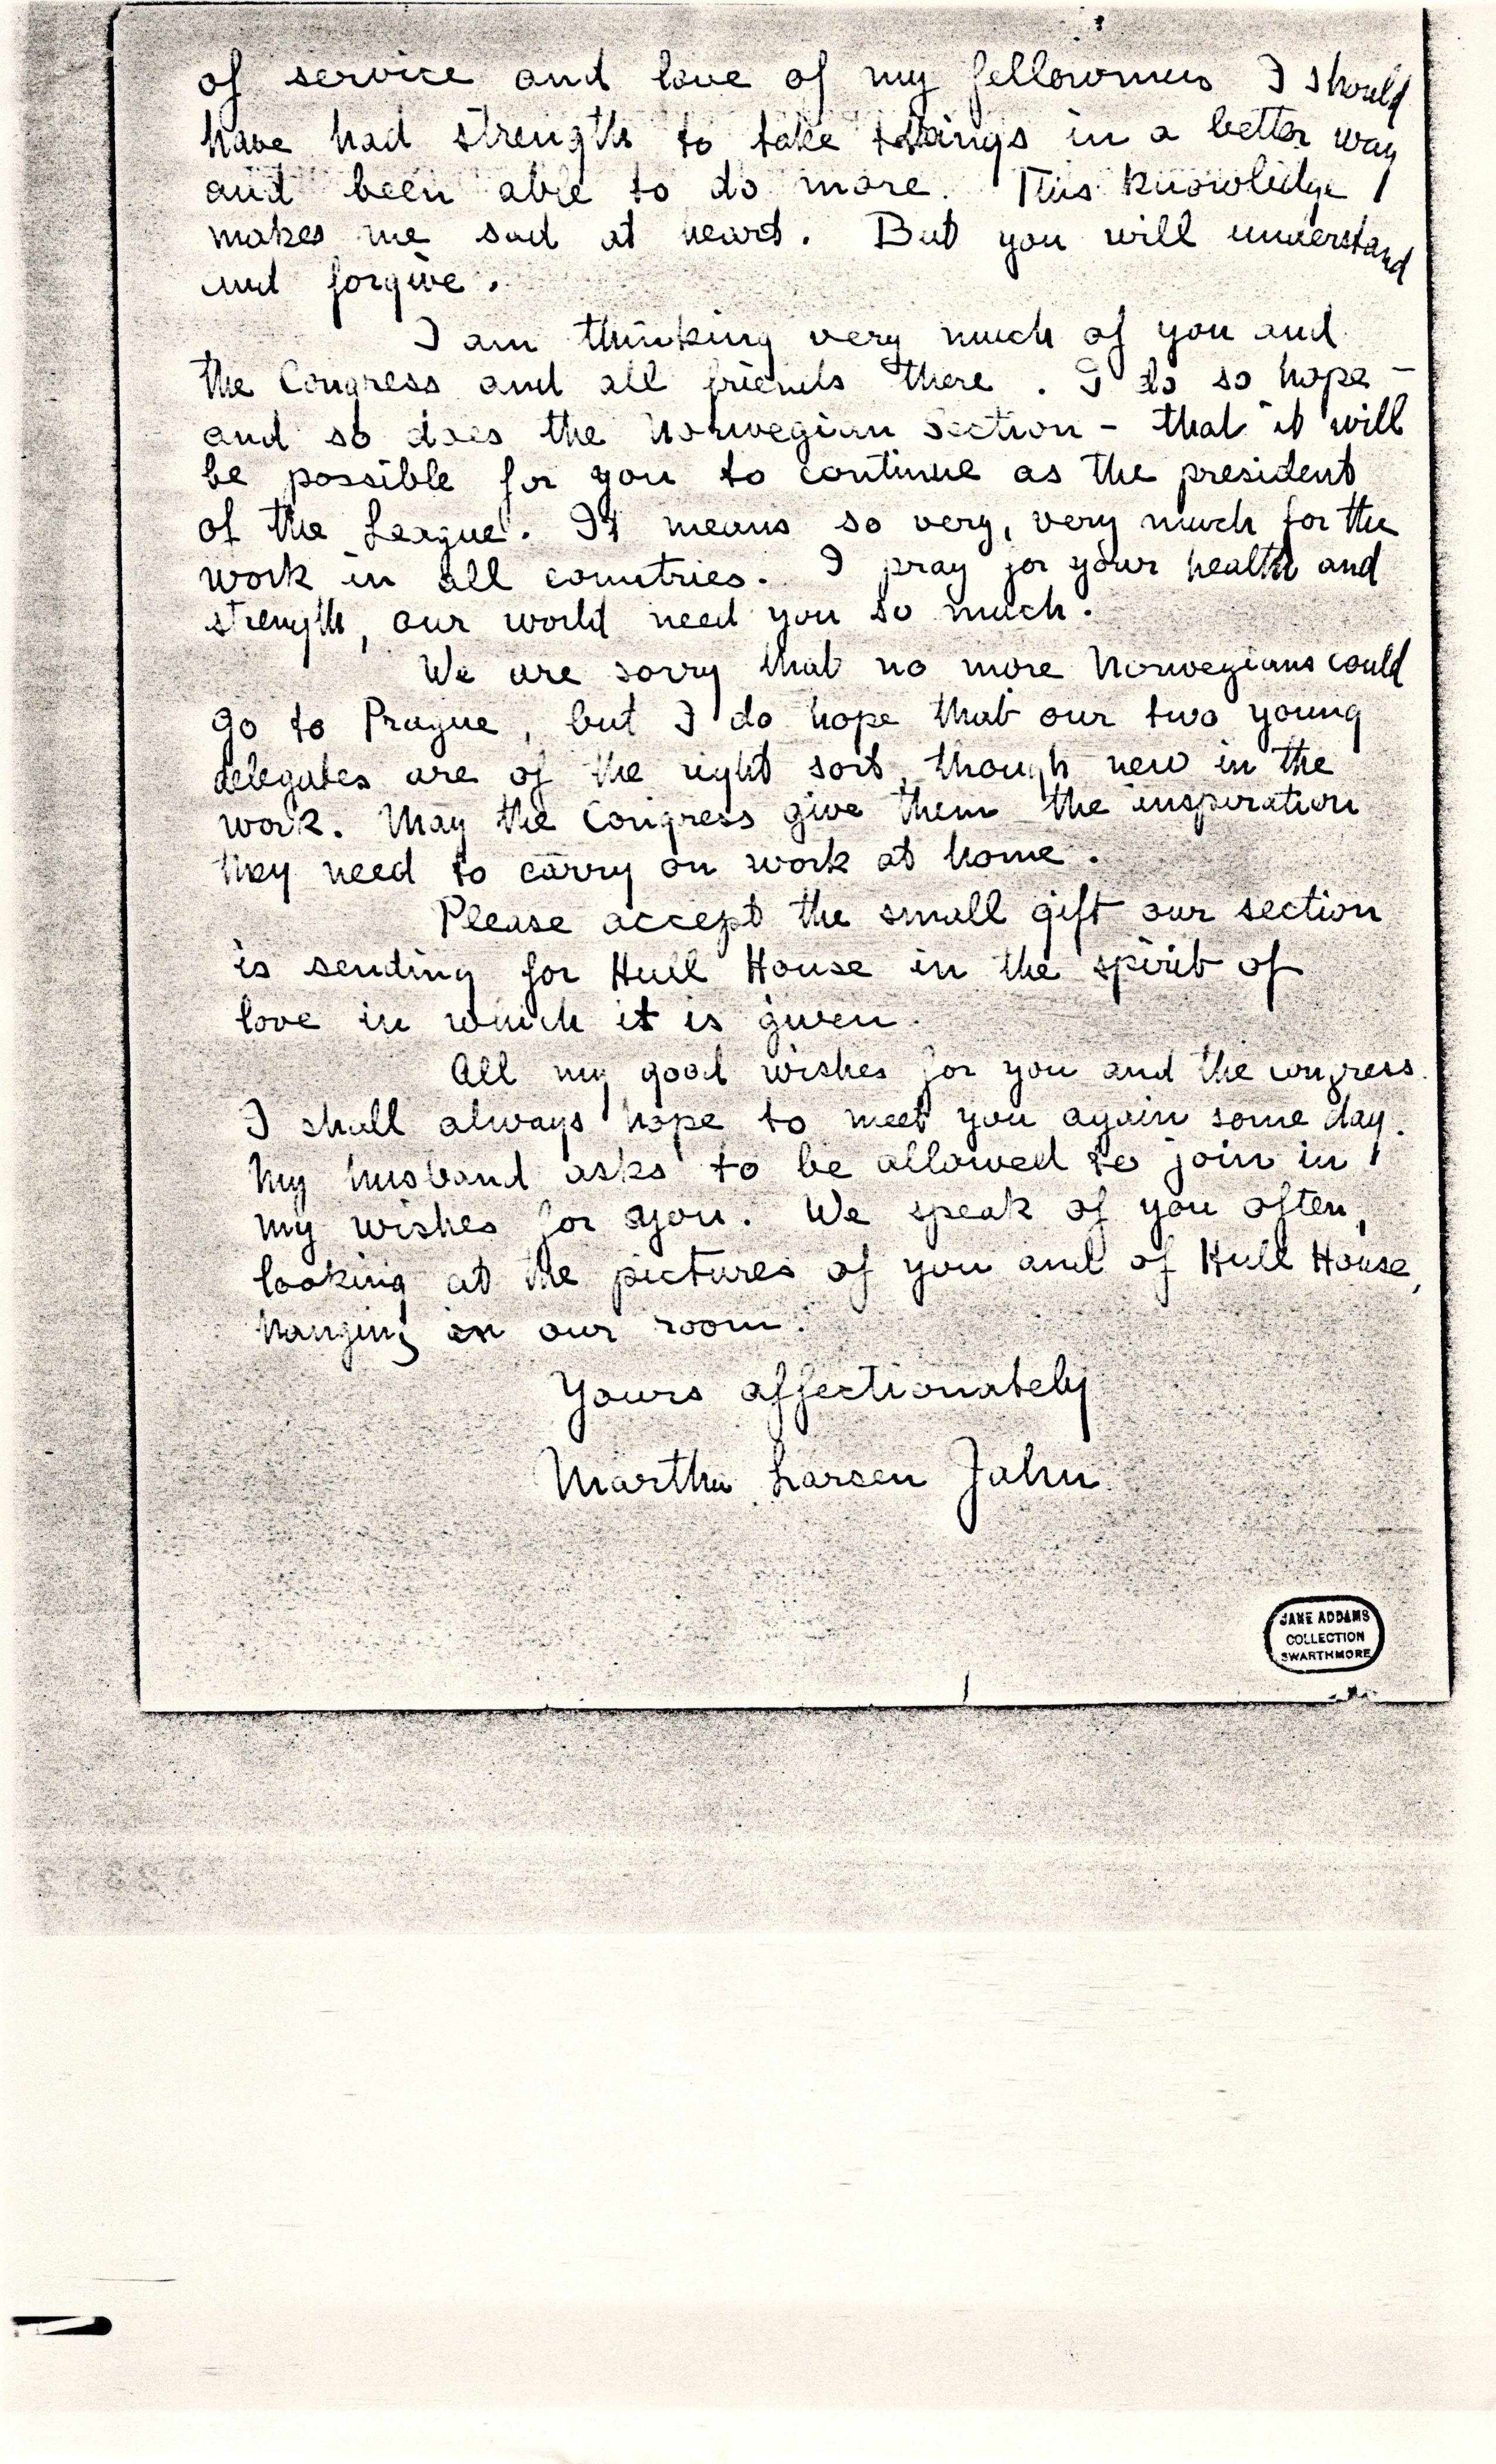 of service and love of my fellowmen I should
have had strength to take things in a better way
and been able to do more. This knowledge
makes me sad at heart. But you will understand
and forgive.
I am thinking very much of you and
the Congress and all friends there. I do so hope –
and so does the Norwegian Section – that it will
be possible for you to continue as the president
of the League. It means so very, very much for the
work in all countries. I pray for your health and
strength, our world need you so much.
We are sorry that no more Norwegians could
go to Prague, but I do hope that our two young
delegates are of the right sort, though new in the
work. May the Congress give them the inspiration
they need to carry on work at home.
Please accept the small gift our section
is sending for Hull House in the spirit of
love in which it is given.
All my good wishes for you and the congress.
I shall always hope to meet you again some day.
My husband asks to be allowed to join in
my wishes for you. We speak of you often,
looking at the pictures of you and of Hull House,
hanging in our room.
Yours affectionately
Martha Larsen Jahn.
JANE ADDAMS
COLLECTION
SWARTHMORE